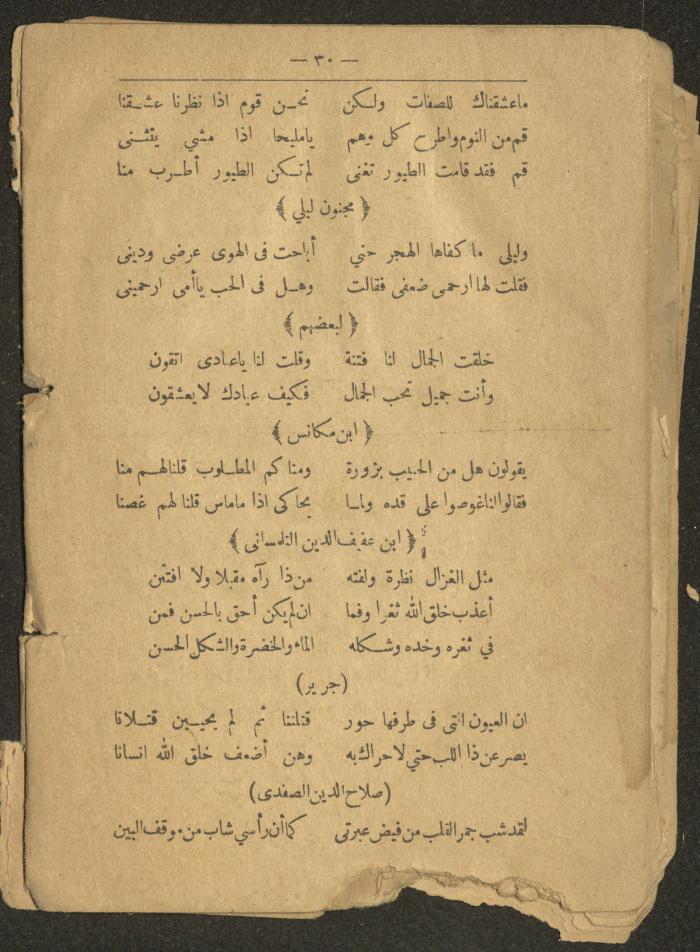 — ٣٠ —
ماعشقناك للصفات ولكن نحن قوم اذا نظرنا عشقنا
قم من النوم واطرح كل وهم يامليحا اذا مشي يتثنى
قم فقد قامت الطيور تغنى لم تكن الطيور أطرب منا
﴿ مجنون ليلي ﴾
وليلى ما كفاها الهجر حتي أباحت فى الهوى عرضى ودينى
فقلت لها ارحمى ضعفى فقالت وهل فى الحب ياأمى ارحمينى
﴿ لبعضهم ﴾
خلقت الجمال لنا فتنة وقلت لنا ياعبادى اتقون
وأنت جميل تحب الجمال فكيف عبادك لايعشقون
﴿ ابن مكانس ﴾
يقولون هل من الحبيب بزورة ومناكم المطلوب قلنالهم منا
فقالوا لناغوصوا على قده ولما يحاكى اذا ماماس قلنا لهم غصنا
﴿ ابن عفيف الدين التلمسانى ﴾
مثل الغزال نظرة ولفته من ذا رآه مقبلا ولا افتتن
أعذب خلق الله ثغرا وفما ان لم يكن أحق بالحسن فمن
في ثغره وخده وشكله الماء والخضرة والشكل الحسن
(جرير)
ان العيون التى فى طرفها حور قتلننا ثم لم يحيين قتلانا
يصرعن ذا اللب حتي لاحراك به وهن أضعف خلق الله انسانا
(صلاح الدين الصفدى)
لقد شب جمر القلب من فيض عبرتى كما أن رأسي شاب من موقف البين